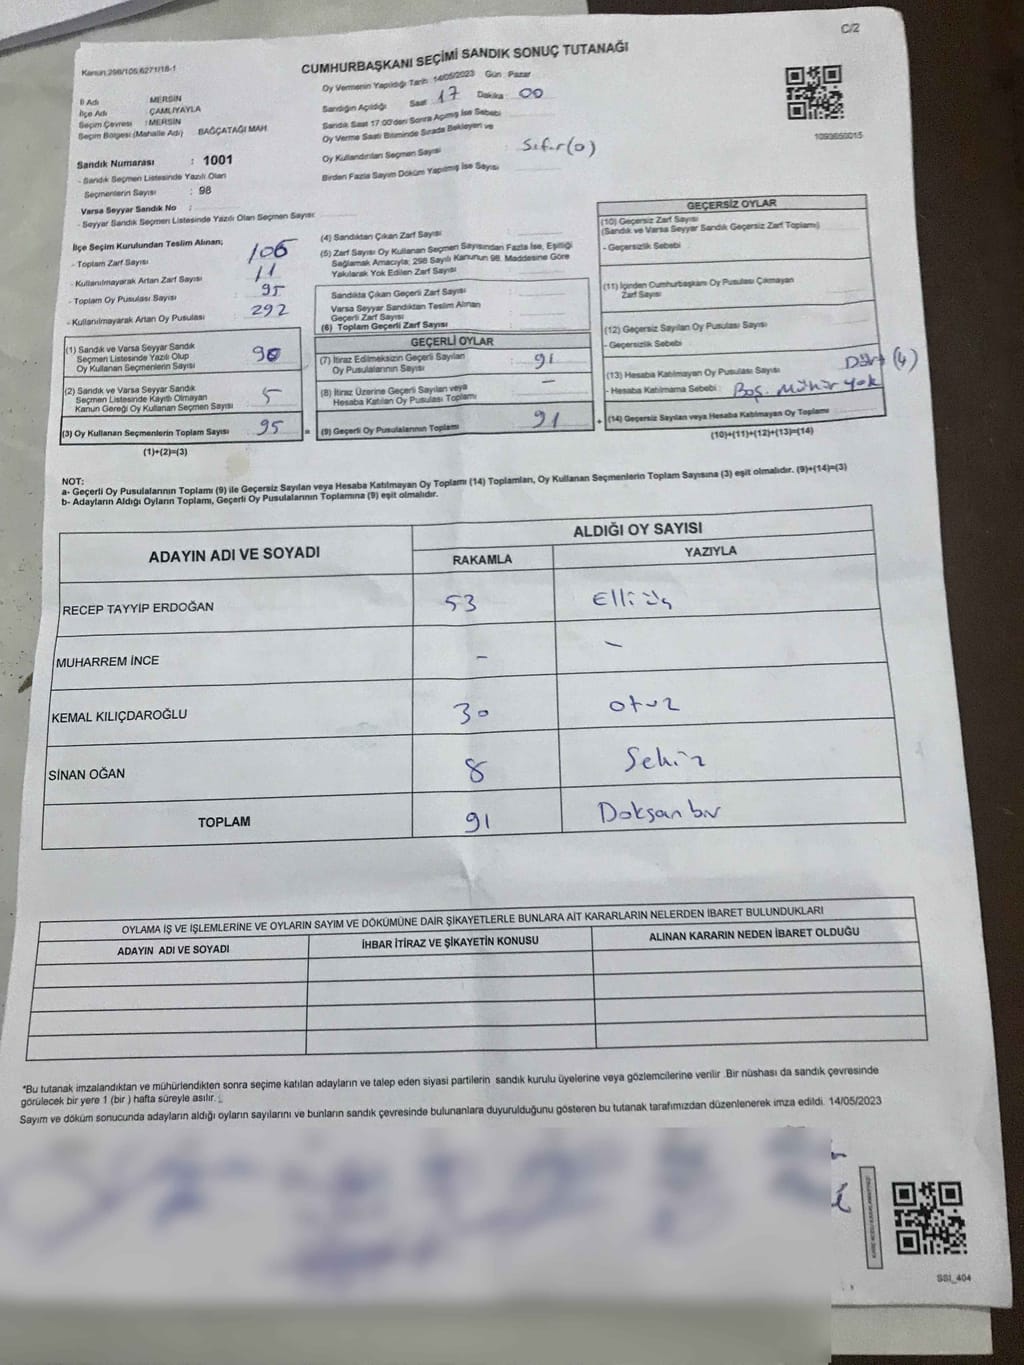 C/2
Kanun:298/105,6271/18-1
CUMHURBAŞKANI SEÇİMİ SANDIK SONUÇ TUTANAĞI
İl Adı : MERSİN
İlçe Adı : ÇAMLIYAYLA
Seçim Çevresi : MERSİN
Seçim Bölgesi (Mahalle Adı) BAĞÇATAĞI MAH.
Sandık Numarası : 1001
- Sandık Seçmen Listesinde Yazılı Olan
Seçmenlerin Sayısı : 98
Varsa Seyyar Sandık No :
- Seyyar Sandık Seçmen Listesinde Yazılı Olan Seçmen Sayısı:
Oy Vermenin Yapıldığı Tarih 14/05/2023 Gün : Pazar
Sandığın Açıldığı Saat 17 Dakika : 00
Sandık Saat 17:00'den Sonra Açımış İse Sebebi
Oy Verme Saati Bitiminde Sırada Bekleyen ve
Oy Kullandırılan Seçmen Sayısı : Sıfır(0)
Birden Fazla Sayım Döküm Yapılmış İse Sayısı
1093650015
İlçe Seçim Kurulundan Teslim Alınan;
- Toplam Zarf Sayısı 106
- Kullanılmayarak Artan Zarf Sayısı 11
- Toplam Oy Pusulası Sayısı : 95
- Kullanılmayarak Artan Oy Pusulası : 292
(1) Sandık ve Varsa Seyyar Sandık
Seçmen Listesinde Yazılı Olup
Oy Kullanan Seçmenlerin Sayısı 90
(2) Sandık ve Varsa Seyyar Sandık
Seçmen Listesinde Kayıtlı Olmayan
Kanun Gereği Oy Kullanan Seçmen Sayısı 5
(3) Oy Kullanan Seçmenlerin Toplam Sayısı 95 =
(1)+(2)=(3)
(4) Sandıktan Çıkan Zarf Sayısı
(5) Zarf Sayısı Oy Kullanan Seçmen Sayısından Fazla İse, Eşitliği
Sağlamak Amacıyla; 298 Sayılı Kanunun 98. Maddesine Göre
Yakılarak Yok Edilen Zarf Sayısı
Sandıkta Çıkan Geçerli Zarf Sayısı
Varsa Seyyar Sandıktan Teslim Alınan
Geçerli Zarf Sayısı
(6) Toplam Geçerli Zarf Sayısı
GEÇERLİ OYLAR
(7) İtiraz Edilmeksizin Geçerli Sayılan
Oy Pusulasının Sayısı : 91
(8) İtiraz Üzerine Geçerli Sayılan veya
Hesaba Katılan Oy Pusulası Toplamı —
(9) Geçerli Oy Pusulalarının Toplamı 91 +
GEÇERSİZ OYLAR
(10) Geçersiz Zarf Sayısı
(Sandık ve Varsa Seyyar Sandık Geçersiz Zarf Toplamı)
- Geçersizlik Sebebi
(11) İçinden Cumhurbaşkanı Oy Pusulası Çıkmayan
Zarf Sayısı
(12) Geçersiz Sayılan Oy Pusulası Sayısı
- Geçersizlik Sebebi
(13) Hesaba Katılmayan Oy Pusulası Sayısı : Dört (4)
- Hesaba Katılmama Sebebi : Boş. Mühür yok
(14) Geçersiz Sayılan veya Hesaba Katılmayan Oy Toplamı
(10)+(11)+(12)+(13)=(14)
NOT:
a- Geçerli Oy Pusulalarının Toplamı (9) ile Geçersiz Sayılan veya Hesaba Katılmayan Oy Toplamı (14) Toplamları, Oy Kullanan Seçmenlerin Toplam Sayısına (3) eşit olmalıdır. (9)+(14)=(3)
b- Adayların Aldığı Oyların Toplamı, Geçerli Oy Pusulalarının Toplamına (9) eşit olmalıdır.
ADAYIN ADI VE SOYADI
ALDIĞI OY SAYISI
RAKAMLA YAZIYLA
RECEP TAYYİP ERDOĞAN 53 Elli üç
MUHARREM İNCE - -
KEMAL KILIÇDAROĞLU 30 otuz
SİNAN OĞAN 8 Sekiz
TOPLAM 91 Doksan bir
OYLAMA İŞ VE İŞLEMLERİNE VE OYLARIN SAYIM VE DÖKÜMÜNE DAİR ŞİKAYETLERLE BUNLARA AİT KARARLARIN NELERDEN İBARET BULUNDUKLARI
ADAYIN ADI VE SOYADI İHBAR İTİRAZ VE ŞİKAYETİN KONUSU ALINAN KARARIN NEDEN İBARET OLDUĞU
*Bu tutanak imzalandıktan ve mühürlendikten sonra seçime katılan adayların ve talep eden siyasi partilerin sandık kurulu üyelerine veya gözlemcilerine verilir .Bir nüshası da sandık çevresinde
görülecek bir yere 1 (bir ) hafta süreyle asılır.
Sayım ve döküm sonucunda adayların aldığı oyların sayılarını ve bunların sandık çevresinde bulunanlara duyurulduğunu gösteren bu tutanak tarafımızdan düzenlenerek imza edildi. 14/05/2023
SSI_404